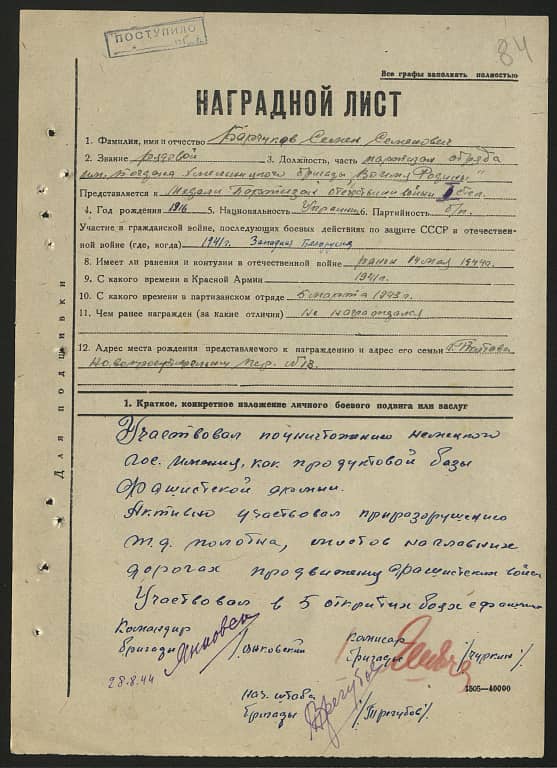 ПОСТУПИЛО
84
Все графы заполнять полностью
НАГРАДНОЙ ЛИСТ
1. Фамилия, имя и отчество Семен Семенович
2. Звание рядовой 3. Должность, часть партизан отряда
им. Богдана Хмельницкого бригады "Воемя Родину"
Представляется к Медали Партизан отечествин войны I степ.
4. Год рождения 1916 5. Национальность Украинец 6. Партийность б/п.
Участие в гражданской войне, последующих боевых действиях по защите СССР и отечествен-
ной войне (где, когда) 1941г. Западная Белоруссия
8. Имеет ли ранения и контузии в отечественной войне ранен 14 мая 1944г.
9. С какого времени в Красной Армии 1941г.
10. С какого времени в партизанском отряде 5 марта 1943г.
11. Чем ранее награжден (за какие отличия) Не награждался
12. Адрес места рождения представляемого к награждению и адрес его семьи г. Полтава
пер. №13.
Для подшивки
1. Краткое, конкретное изложение личного боевого подвига или заслуг
Участвовал поуничтожению немецкого
гос. имения, как продуктовой базы
фашистской армии.
Активно участвовал приразорушению
ж.д. полотна, мостов на главних
дорогах продвижения фрашистских войск
Участвовал в 5 открытих боях с фашист
Командир
бригады /Янковский
Комисар
бригады /Чуркин/
28.8.44
1505—40000
нач. штаба
бригады /Трегубов/